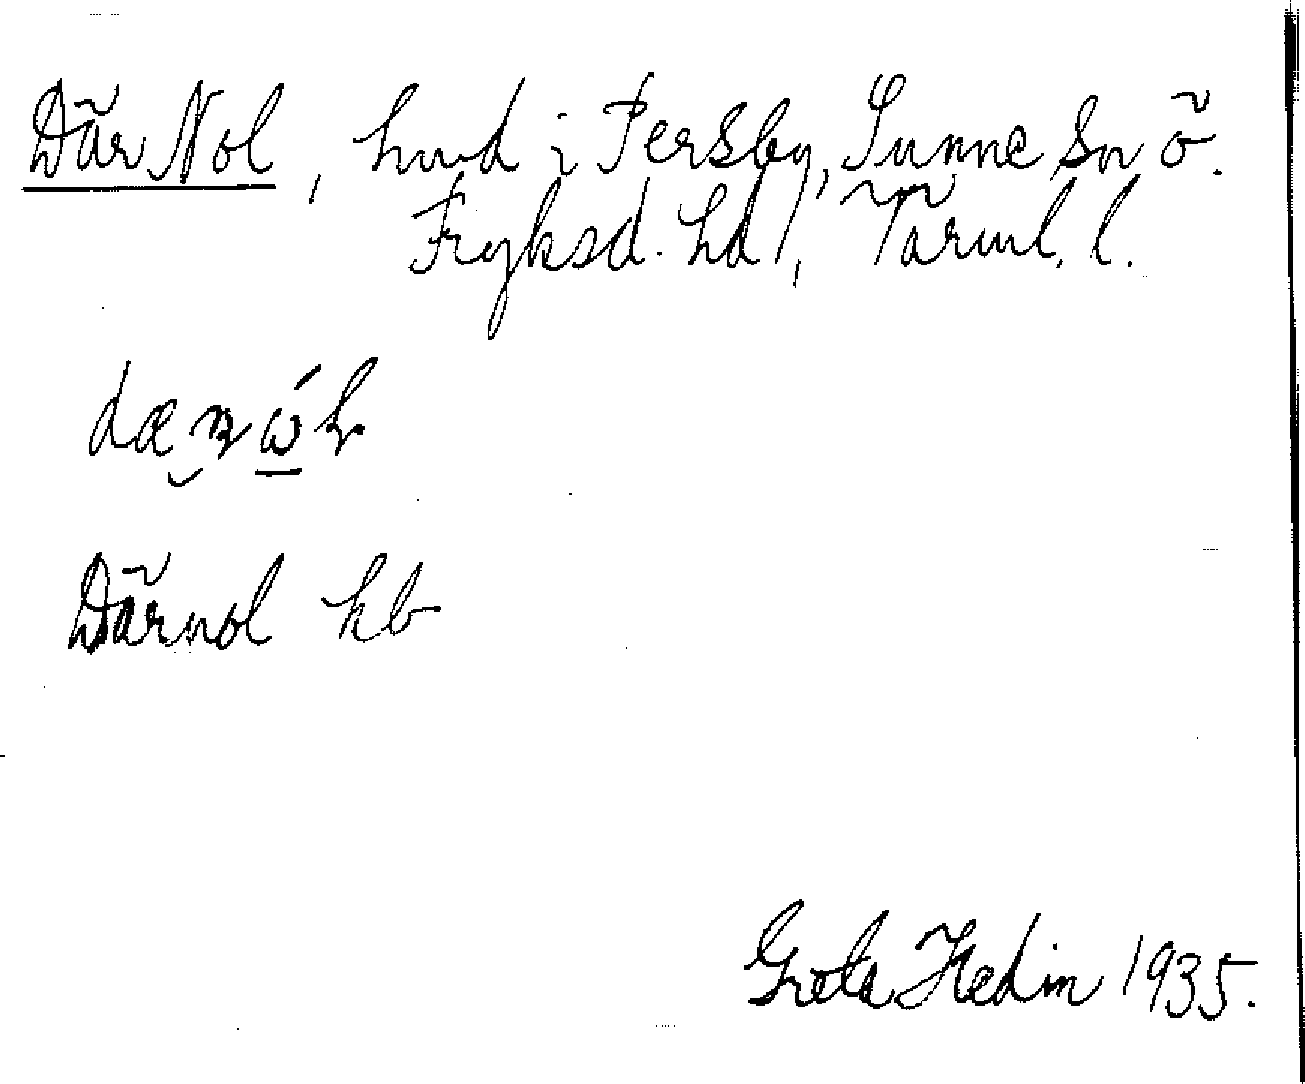 Där Nol, hmd i Persby, Sunne sn ö.
Fryksd. hd, Värml. l.
Därnol kb
Greta Hedin 1935.